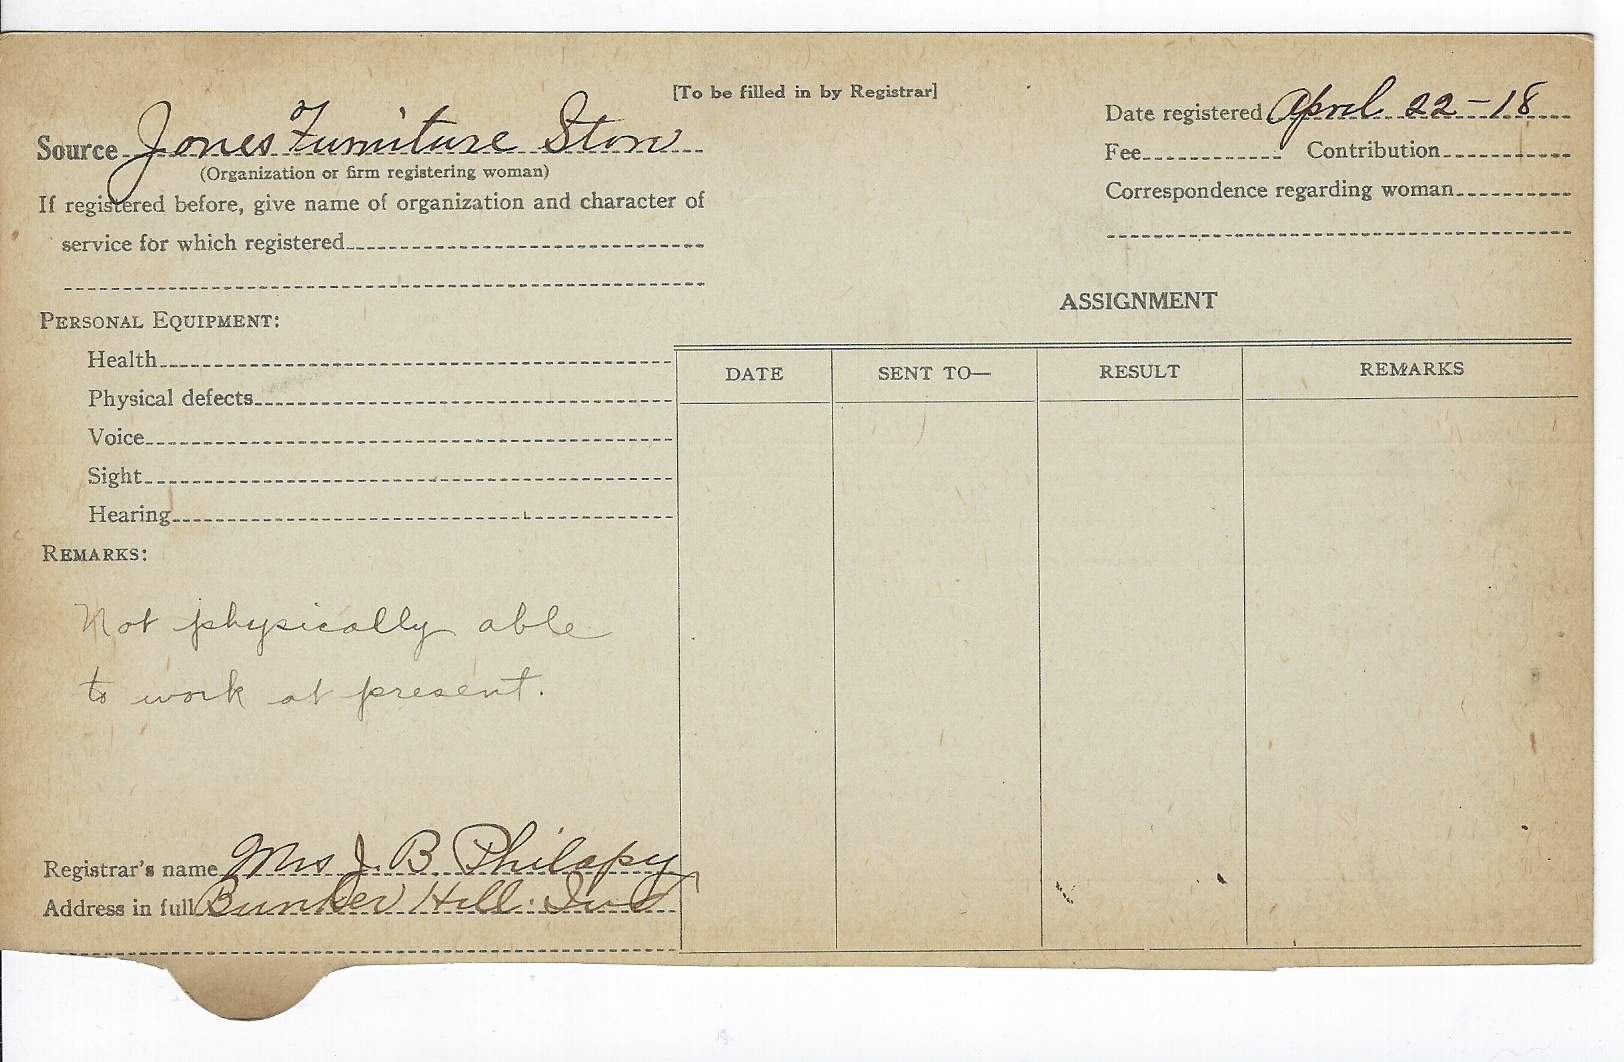 [To be filled in by Registrar]
Source Jones Furniture Store
(Organization or firm registering woman)
If registered before, give name of organization and character of
service for which registered
Date registered April 22-18
Fee Contribution
Correspondence regarding woman
PERSONAL EQUIPMENT:
Health
Physical defects
Voice
Sight
Hearing
REMARKS:
Not physically able
to work at present.
Registrar's name Mrs J. B Philapy
Address in full Bunker Hill. Ind
ASSIGNMENT
DATE SENT TO— RESULT REMARKS